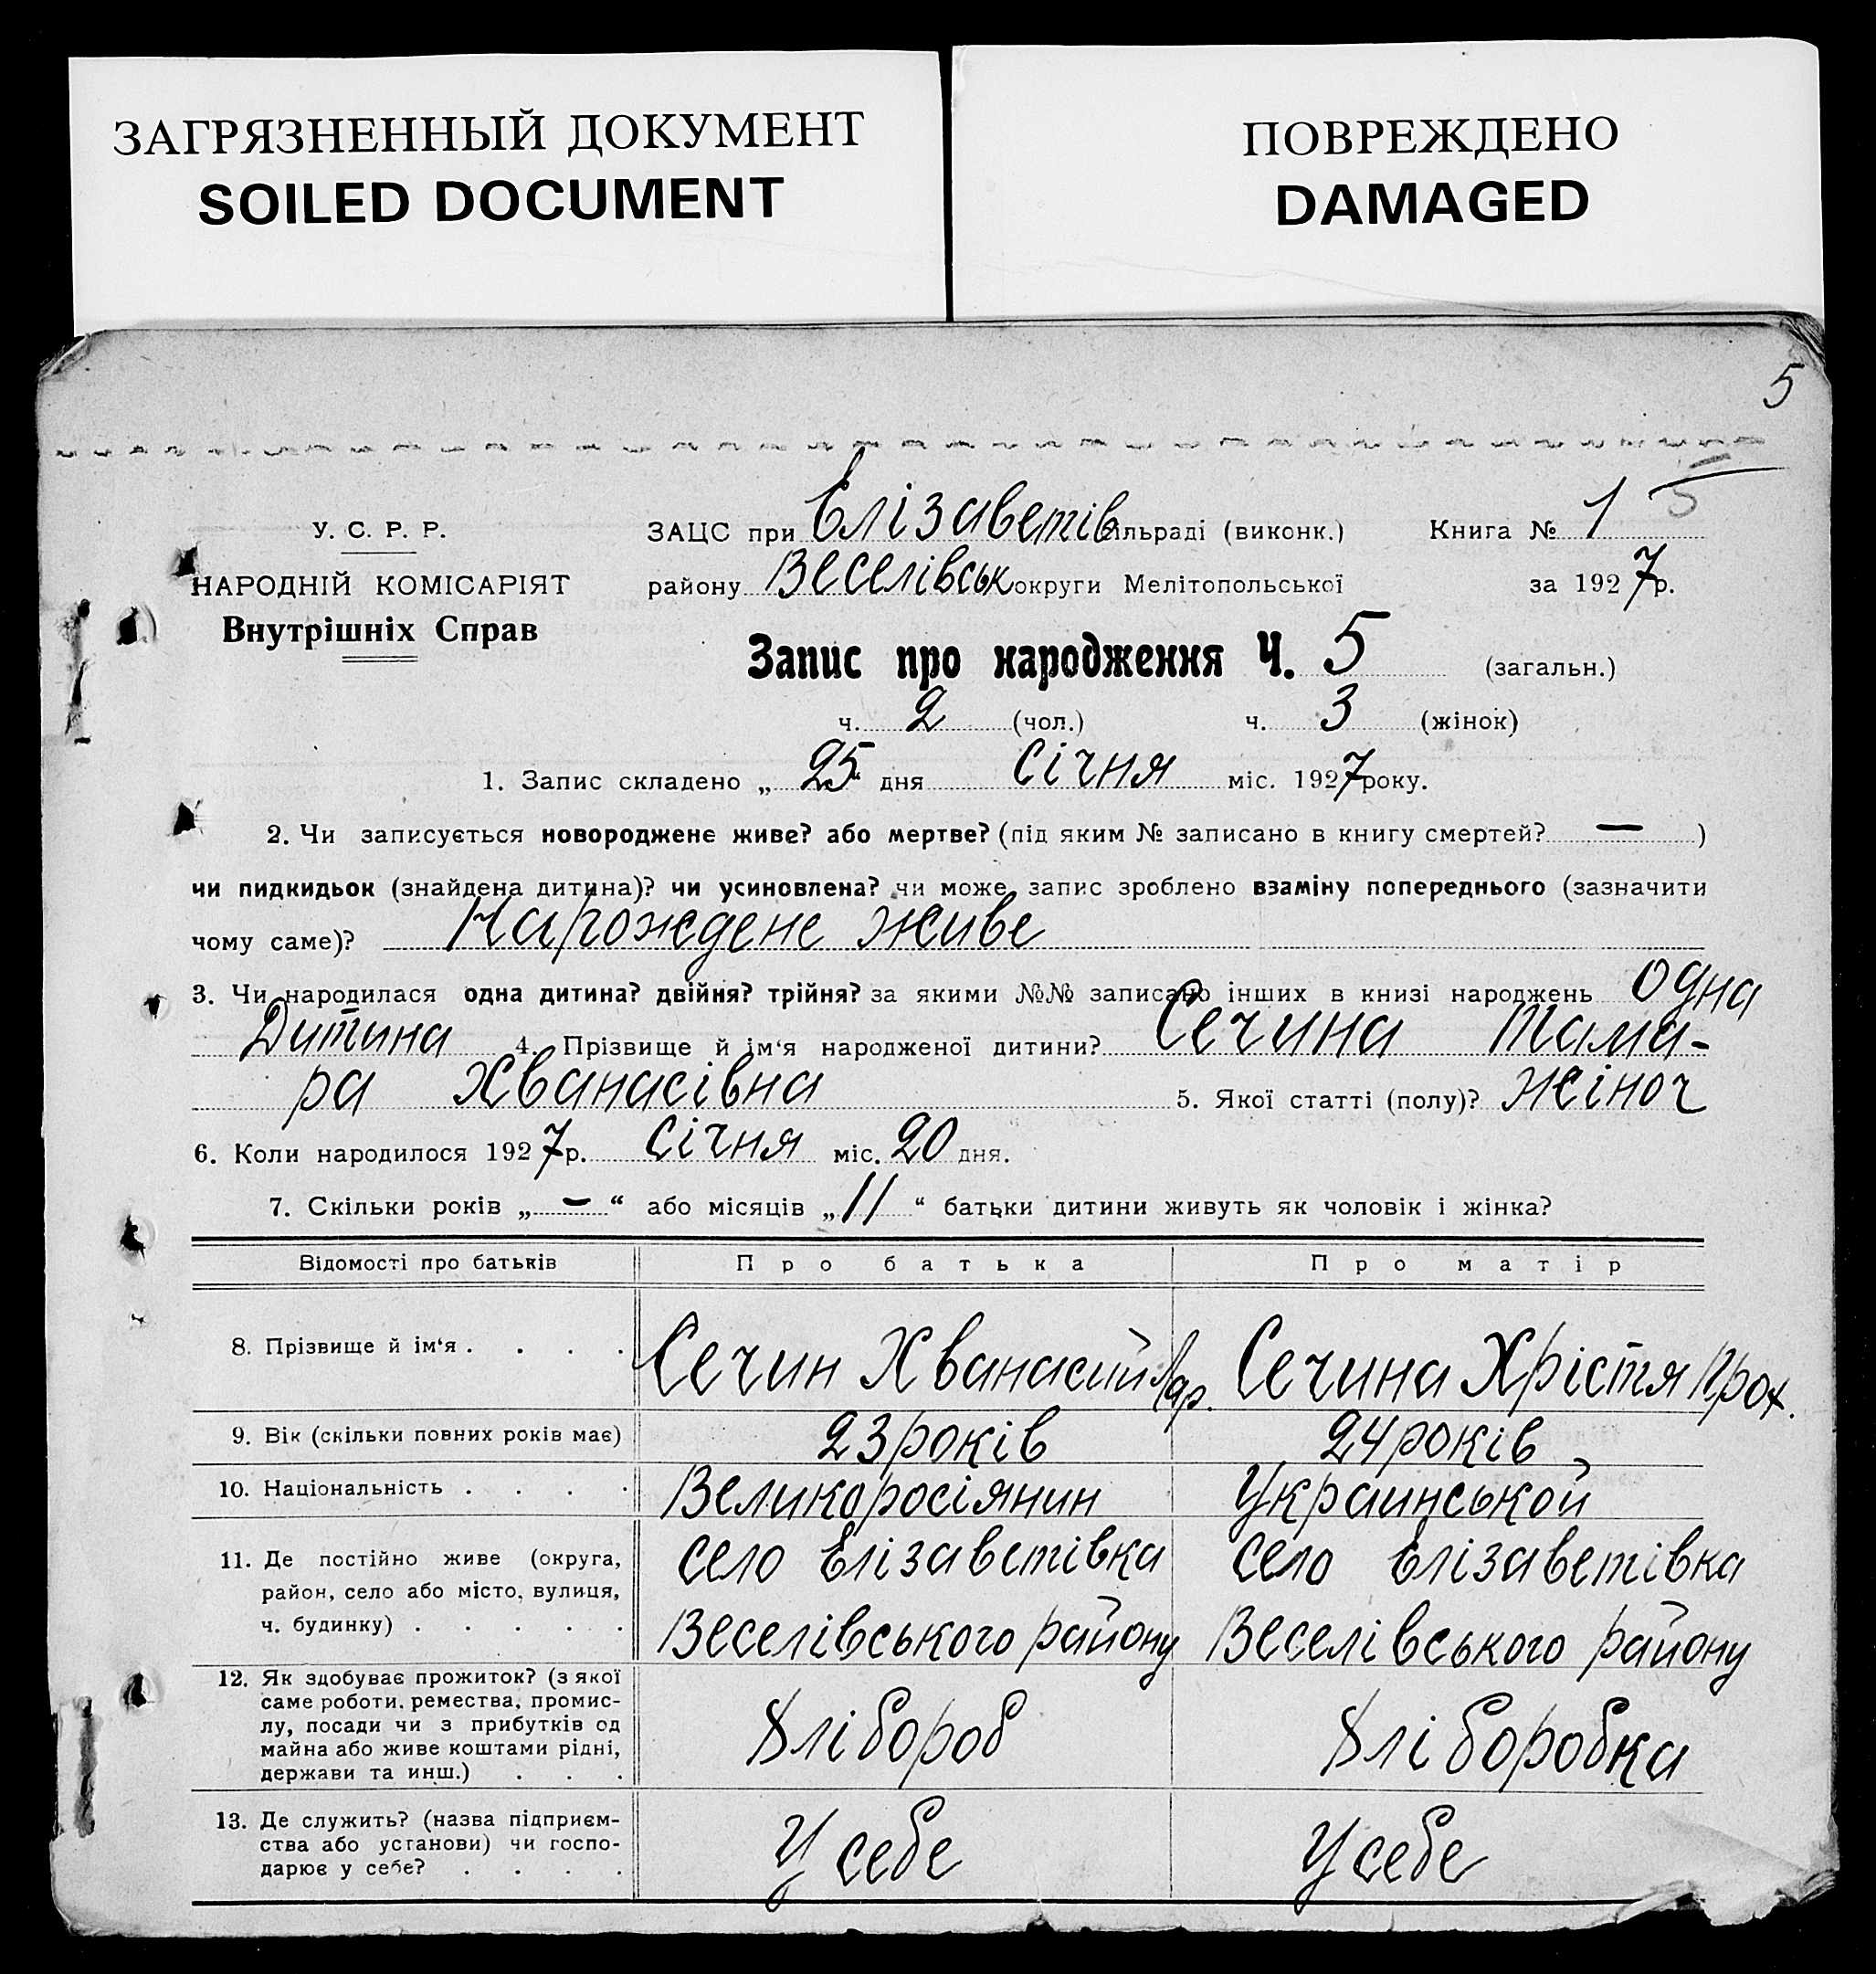 ЗАГРЯЗНЕННЫЙ ДОКУМЕНТ
SOILED DOCUMENT
ПОВРЕЖДЕНО
DAMAGED
5
У. С. Р. Р.
НАРОДНІЙ КОМІСАРІЯТ
Внутрішніх Справ
ЗАЦС при Єлізаветів сільраді (виконк.) Книга № 1 5
району Веселівськ округи Мелітопольської за 1927 р.
Запис про народження Ч. 5 (загальн.)
ч. 2 (чол.) ч. 3 (жінок)
1. Запис складено „ 25 дня січня міс. 1927 року.
2. Чи записується новороджене живе? або мертве? (під яким № записано в книгу смертей? — )
чи пидкидьок (знайдена дитина)? чи усиновлена? чи може запис зроблено взаміну попереднього (зазначити
чому саме)? Нарождене живе
3. Чи народилася одна дитина? двійня? трійня? за якими №№ записано інших в книзі народжень одна
Дитина 4. Прізвище й ім‘я народженої дитини? Сечина Тама-
ра Хванасівна 5. Якої статті (полу)? жіноч
6. Коли народилося 1927 р. січня міс. 20 дня.
7. Скільки років „ — “ або місяців „ 11 “ батьки дитини живуть як чоловік і жінка?
Відомості про батьків Про батька Про матір
8. Прізвище й ім‘я . . . . Сечин Хванасий Лар. Сечина Хрістя Прох.
9. Вік (скільки повних років має) 23 років 24 років
10. Національність . . . . Великоросіянин Украинськой
11. Де постійно живе (округа, район, село або місто, вулиця, ч. будинку) . . . . . село Елізаветівка Веселівського району село Елізаветівка Веселівського району
12. Як здобуває прожиток? (з якої саме роботи, ремества, промис-
лу, посади чи з прибутків од
майна або живе коштами рідні,
держави та инш.) . . . Хлібороб Хліборобка
13. Де служить? (назва підприєм-
ства або установи) чи госпо-
дарює у себе? . . . . У себе У себе